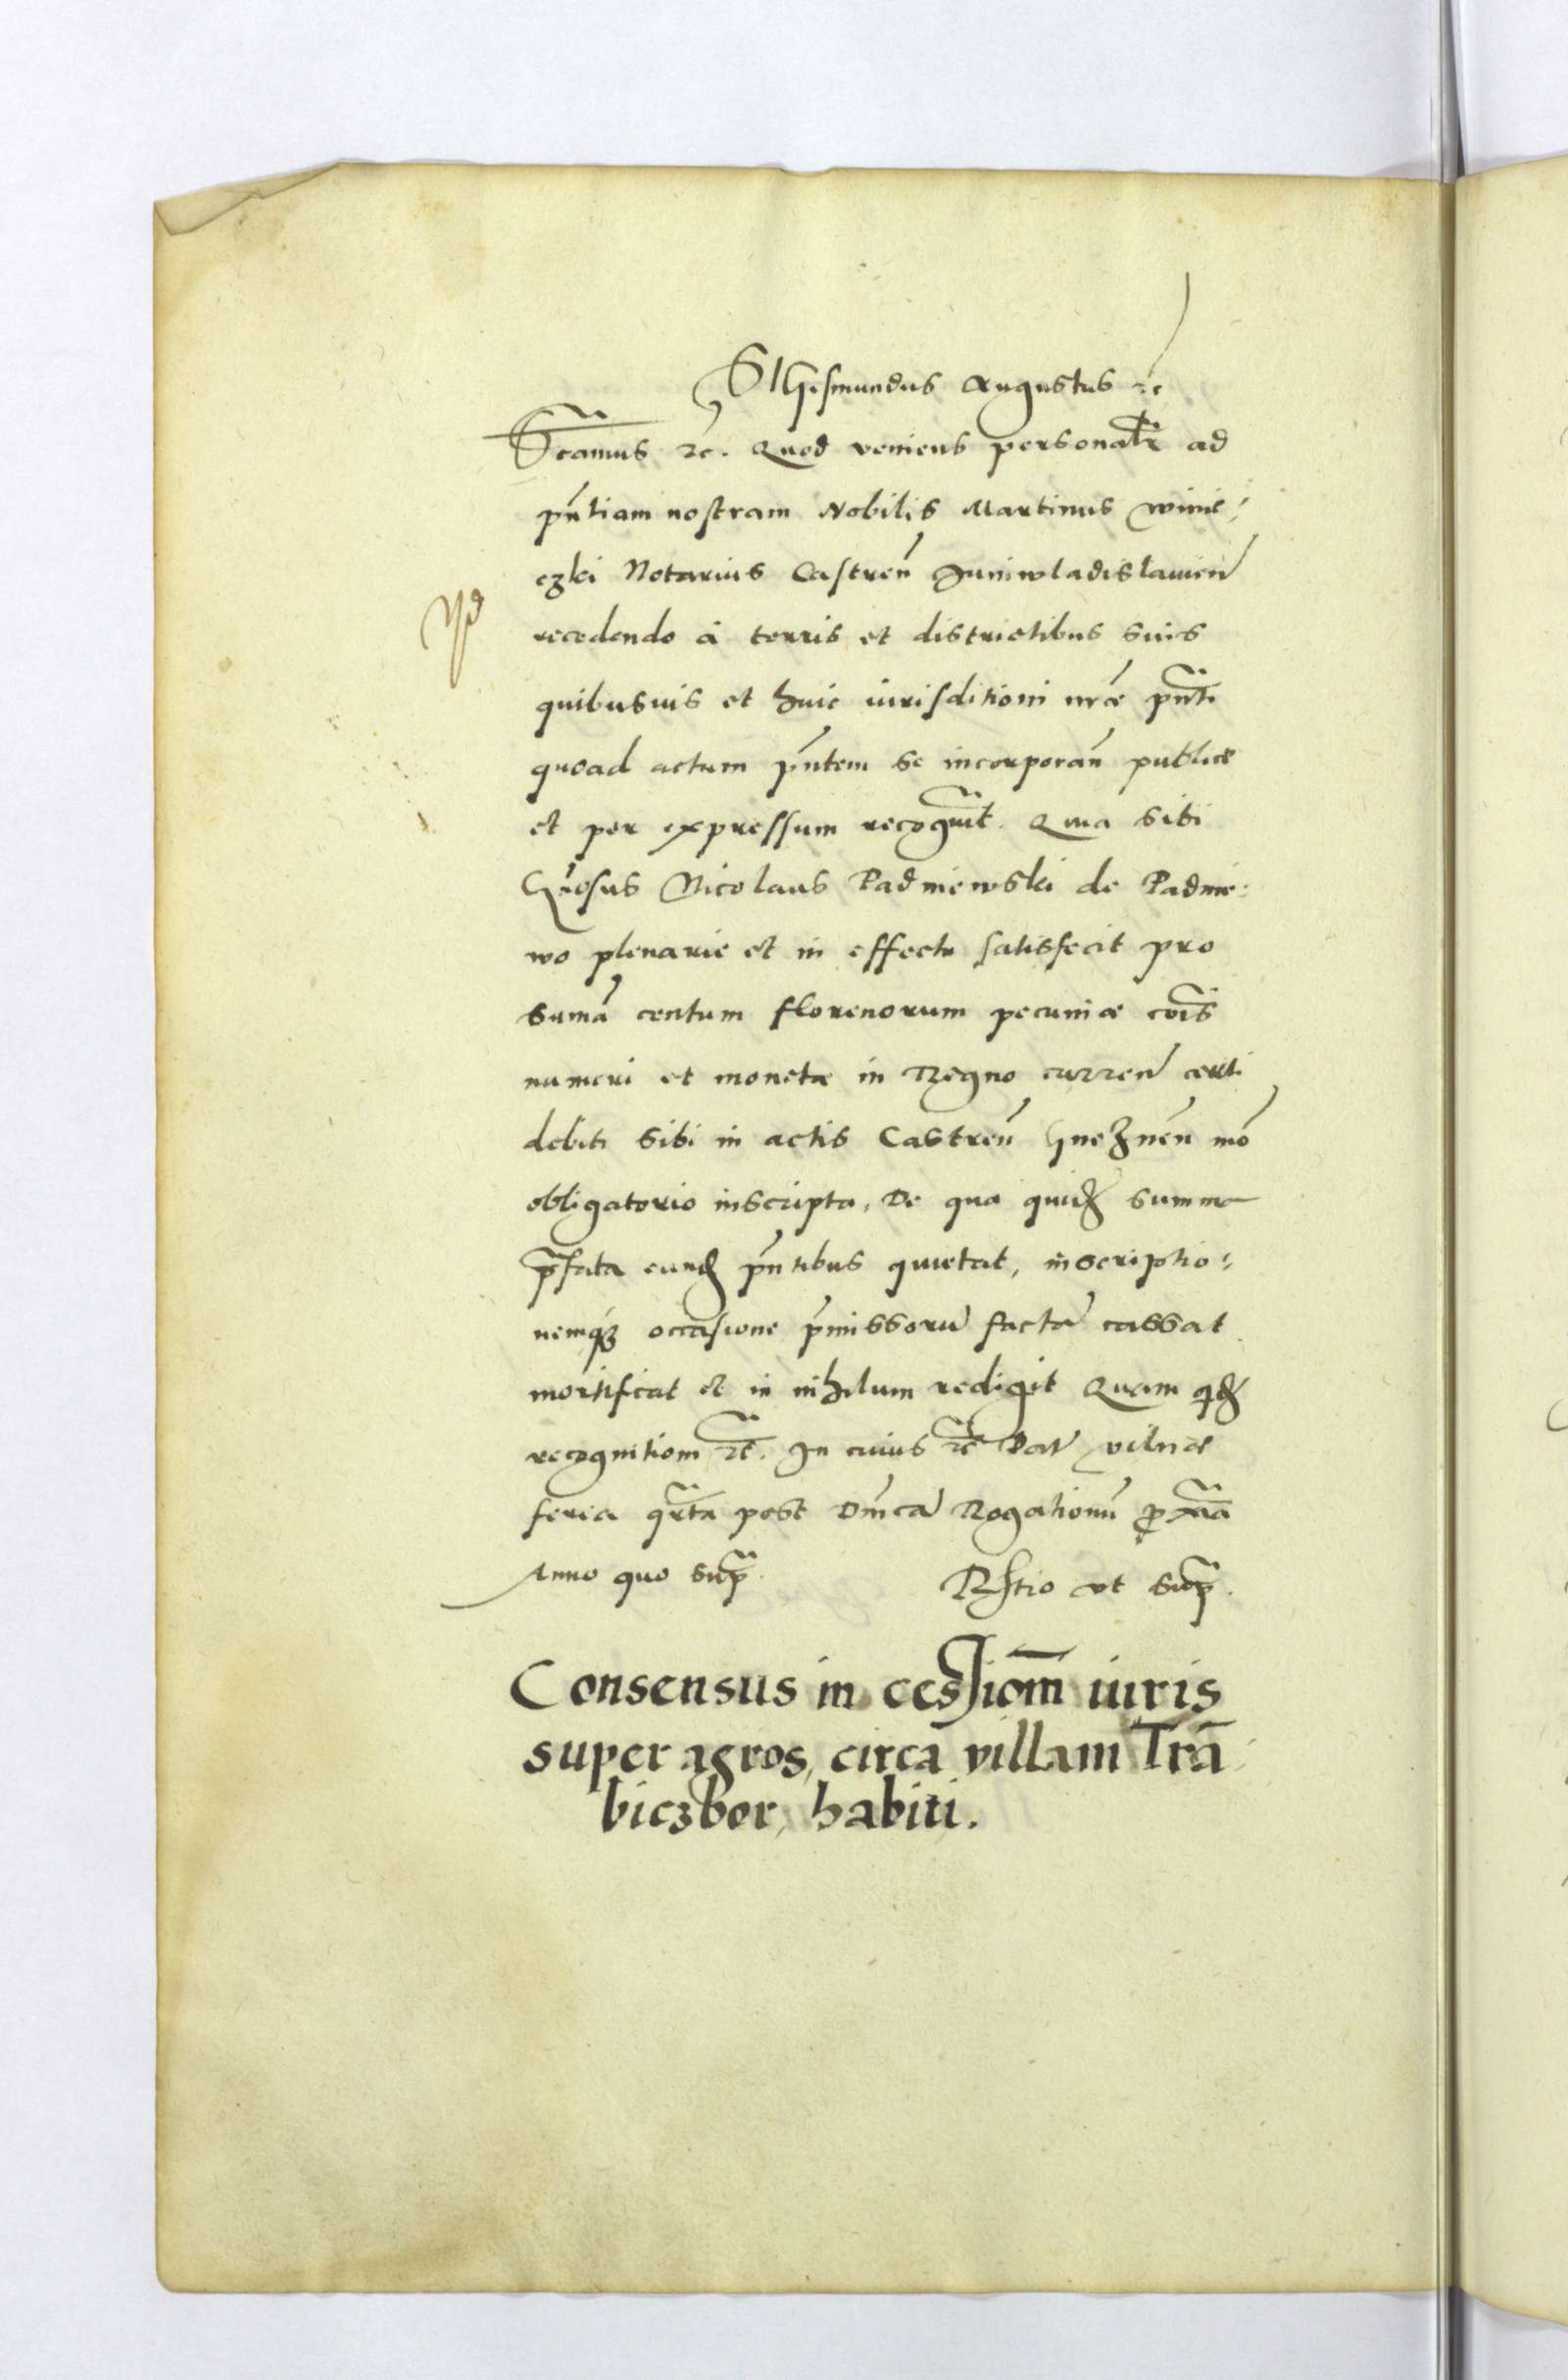 SIGismundus Augustus ꝛc
S̃camus ꝛc. Quod veniens personalr̃ ad
pñtiam nostram Nobilis Martinus Winie-
czki Notarius Castreñ Juniwladislauieñ
recedendo à terris et districtibus suis
quibusuis et huic iurisditioni nr̃æ pñti
quoad actum pñtem se incorporañ publicæ
et per expressum recognuit̃. Quia sibi
Gñosus Nicolaus Padniewski de Padnie-
wo plenarie et in effectu satisfecit pro
sumã centum florenorum pecuniæ cõis
numeri et monetæ in Regno curreñ certi
debiti sibi in actis Castreñ Gneznẽn mõ
obligatorio inscripta, De qua quidẽ summa
p̃fata eundẽ pñtibus quietat, inscriptio-
nemqꝫ occasione p̃missorũ factã cassat
mortificat et in nihilum redigit Quam qdẽ
recognitiom̃ ꝛc̃. In cuius ꝛc̃ Dat̃ Vilnæ
feria qrta post Dñicã Rogationũ ꝓxiã
Anno quo sup̃.
Rl̃tio vt sup̃.
Consensus in cessiom̃ iuris
super agros, circa villam Trã
biczbor, habiti.